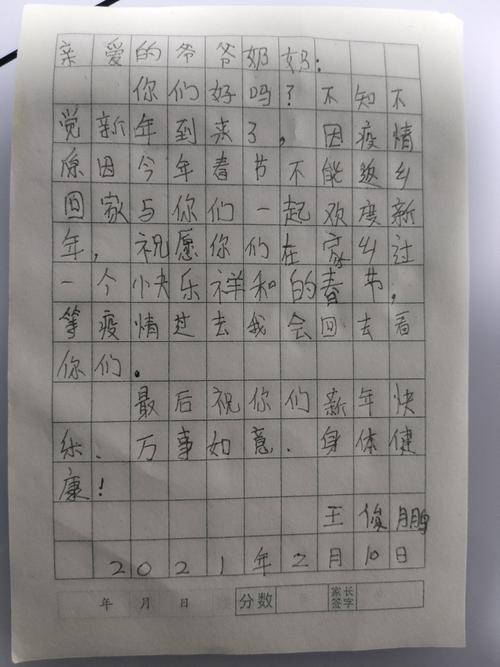 亲爱的爷爷奶奶：
你们好吗？不知不
觉新年到来了，因疫情
原因今年春节不能返乡
回家与你们一起欢度新
年，祝愿你们在家乡过
一个快乐祥和的春节，
等疫情过去我会回去看
你们.
最后祝你们新年快
乐.万事如意.身体健
康！
王俊鹏
2021年2月10日
年 月 日 分数 家长签字